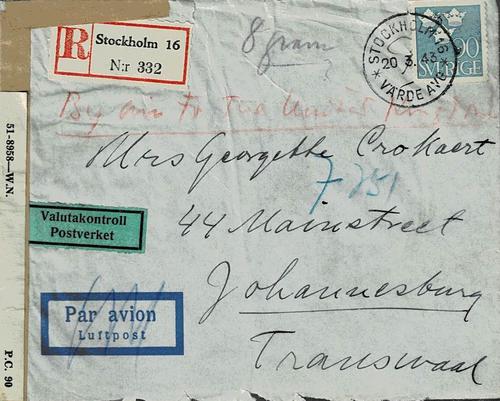 R Stockholm 16
N:r 332
8 gram
STOCKHOLM 16
20 3. 43
VÄRDEAVG.
90
SVERIGE
By air to The United Kingdom
Mrs Georgette Crokaert
7351
44 Mainstreet
Johannesburg
Transvaal
Valutakontroll
Postverket
Par avion
Luftpost
51-8958—W.N.
P.C. 90